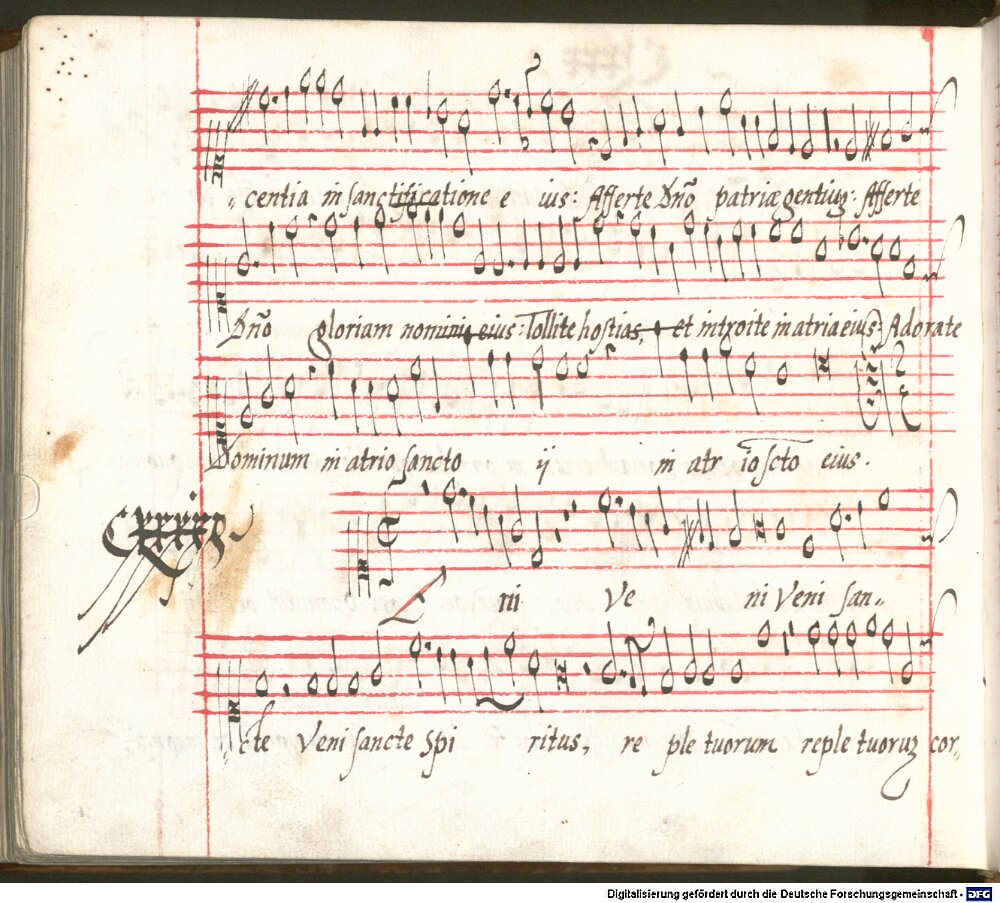 „ centia in sanctificatione e ius: Afferte Dño patriæ gentiuʒ: Afferte
Dño gloriam nominis eius: Tollite hostias, et introite in atria eius: Adorate
Dominum in atrio sancto ij in atr io scto eius.
ni Ve ni Veni san„
cte Veni sancte Spi ritus, re ple tuorum reple tuoruʒ cor„
Digitalisierung gefördert durch die Deutsche Forschungsgemeinschaft - DFG